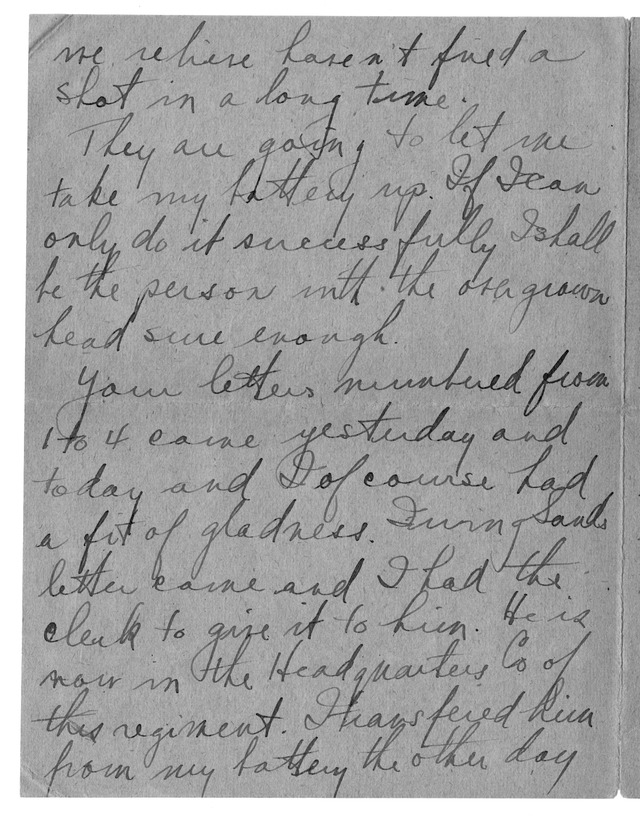 we relieve haven't fired a
shot in a long time.
They are going to let me
take my battery up. If I can
only do it successfully I shall
be the person with the overgrown
head sure enough.
Your letters numbered from
1 to 4 came yesterday and
today and I of course had
a fit of gladness. Irving Sands
letter came and I had the
clerk to give it to him. He is
now in the Headquarters Co of
this regiment. I transfered him
from my battery the other day